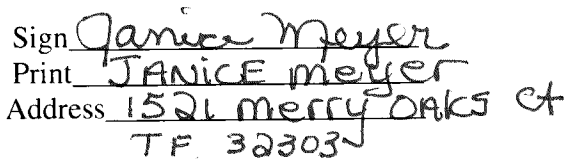 Sign Janice Meyer
Print JANICE meyer
Address 1521 merry OAKS ct
TF 32303